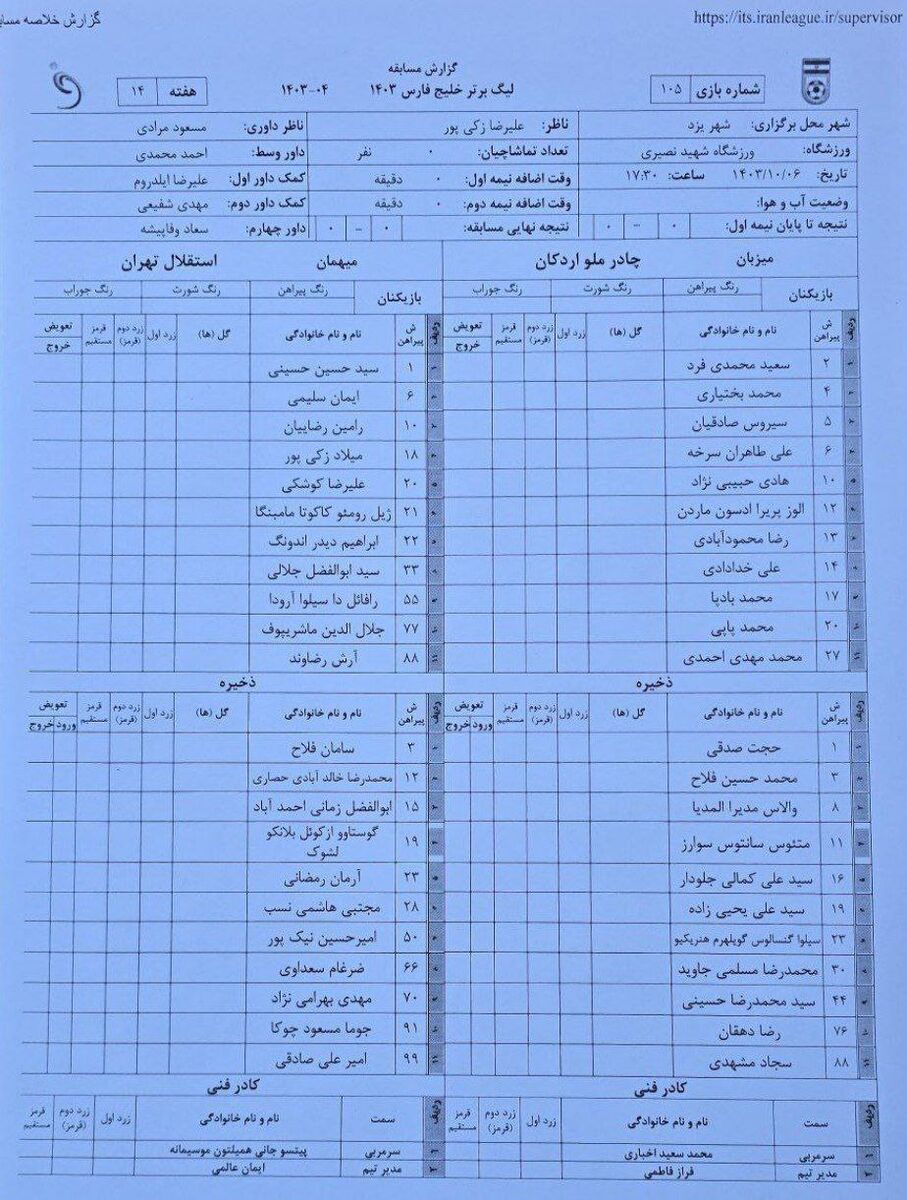 گزارش خلاصه
https://its.iranleague.ir/supervisor
گزارش مسابقه
شماره بازی ۱۰۵
لیگ برتر خلیج فارس ۱۴۰۳ ۰۴-۱۴۰۳
هفته ۱۴
شهر محل برگزاری: شهر یزد ناظر: علیرضا زکی پور ناظر داوری: مسعود مرادی
ورزشگاه: ورزشگاه شهید نصیری تعداد تماشاچیان: ۰ نفر داور وسط: احمد محمدی
تاریخ: ۱۴۰۳/۱۰/۰۶ ساعت: ۱۷:۳۰ وقت اضافه نیمه اول: ۰ دقیقه کمک داور اول: علیرضا ایلدروم
وضعیت آب و هوا: وقت اضافه نیمه دوم: ۰ دقیقه کمک داور دوم: مهدی شفیعی
نتیجه تا پایان نیمه اول: ۰ – ۰ نتیجه نهایی مسابقه: ۰ – ۰ داور چهارم: سعاد وفاپیشه
میزبان چادر ملو اردکان
بازیکنان رنگ پیراهن رنگ شورت رنگ جوراب
ردیف ش پیراهن نام و نام خانوادگی گل (ها) زرد اول زرد دوم (قرمز) قرمز مستقیم تعویض خروج
۱ ۲ سعید محمدی فرد
۲ ۴ محمد بختیاری
۳ ۵ سیروس صادقیان
۴ ۶ علی طاهران سرخه
۵ ۱۰ هادی حبیبی نژاد
۶ ۱۲ الوز پریرا ادسون ماردن
۷ ۱۳ رضا محمودآبادی
۸ ۱۴ علی خدادادی
۹ ۱۷ محمد بادپا
۱۰ ۲۰ محمد پاپی
۱۱ ۲۷ محمد مهدی احمدی
ذخیره
ردیف ش پیراهن نام و نام خانوادگی گل (ها) زرد اول زرد دوم (قرمز) قرمز مستقیم تعویض ورود خروج
۱ ۱ حجت صدقی
۲ ۳ محمد حسین فلاح
۳ ۸ والاس مدیرا المدیا
۴ ۱۱ متئوس سانتوس سوارز
۵ ۱۶ سید علی کمالی جلودار
۶ ۱۹ سید علی یحیی زاده
۷ ۲۳ سیلوا گنسالوس گویلهرم هنریکیو
۸ ۳۰ محمدرضا مسلمی جاوید
۹ ۴۴ سید محمدرضا حسینی
۱۰ ۷۶ رضا دهقان
۱۱ ۸۸ سجاد مشهدی
کادر فنی
ردیف سمت نام و نام خانوادگی زرد اول زرد دوم (قرمز) قرمز مستقیم
۱ سرمربی محمد سعید اخباری
۲ مدیر تیم فراز فاطمی
میهمان استقلال تهران
بازیکنان رنگ پیراهن رنگ شورت رنگ جوراب
ردیف ش پیراهن نام و نام خانوادگی گل (ها) زرد اول زرد دوم (قرمز) قرمز مستقیم تعویض خروج
۱ ۱ سید حسین حسینی
۲ ۶ ایمان سلیمی
۳ ۱۰ رامین رضاییان
۴ ۱۸ میلاد زکی پور
۵ ۲۰ علیرضا کوشکی
۶ ۲۱ ژیل رومئو کاکوتا مامبنگا
۷ ۲۲ ابراهیم دیدر اندونگ
۸ ۳۳ سید ابوالفضل جلالی
۹ ۵۵ رافائل دا سیلوا آرودا
۱۰ ۷۷ جلال الدین ماشریپوف
۱۱ ۸۸ آرش رضاوند
ذخیره
ردیف ش پیراهن نام و نام خانوادگی گل (ها) زرد اول زرد دوم (قرمز) قرمز مستقیم تعویض ورود خروج
۱ ۳ سامان فلاح
۲ ۱۲ محمدرضا خالد آبادی حصاری
۳ ۱۵ ابوالفضل زمانی احمد آباد
۴ ۱۹ گوستاوو ازکوئل بلانکو
لشوک
۵ ۲۳ آرمان رمضانی
۶ ۲۸ مجتبی هاشمی نسب
۷ ۵۰ امیرحسین نیک پور
۸ ۶۶ ضرغام سعداوی
۹ ۷۰ مهدی بهرامی نژاد
۱۰ ۹۱ جوما مسعود چوکا
۱۱ ۹۹ امیر علی صادقی
کادر فنی
ردیف سمت نام و نام خانوادگی زرد اول زرد دوم (قرمز) قرمز مستقیم
۱ سرمربی پیتسو جانی همیلتون موسیمانه
۲ مدیر تیم ایمان عالمی